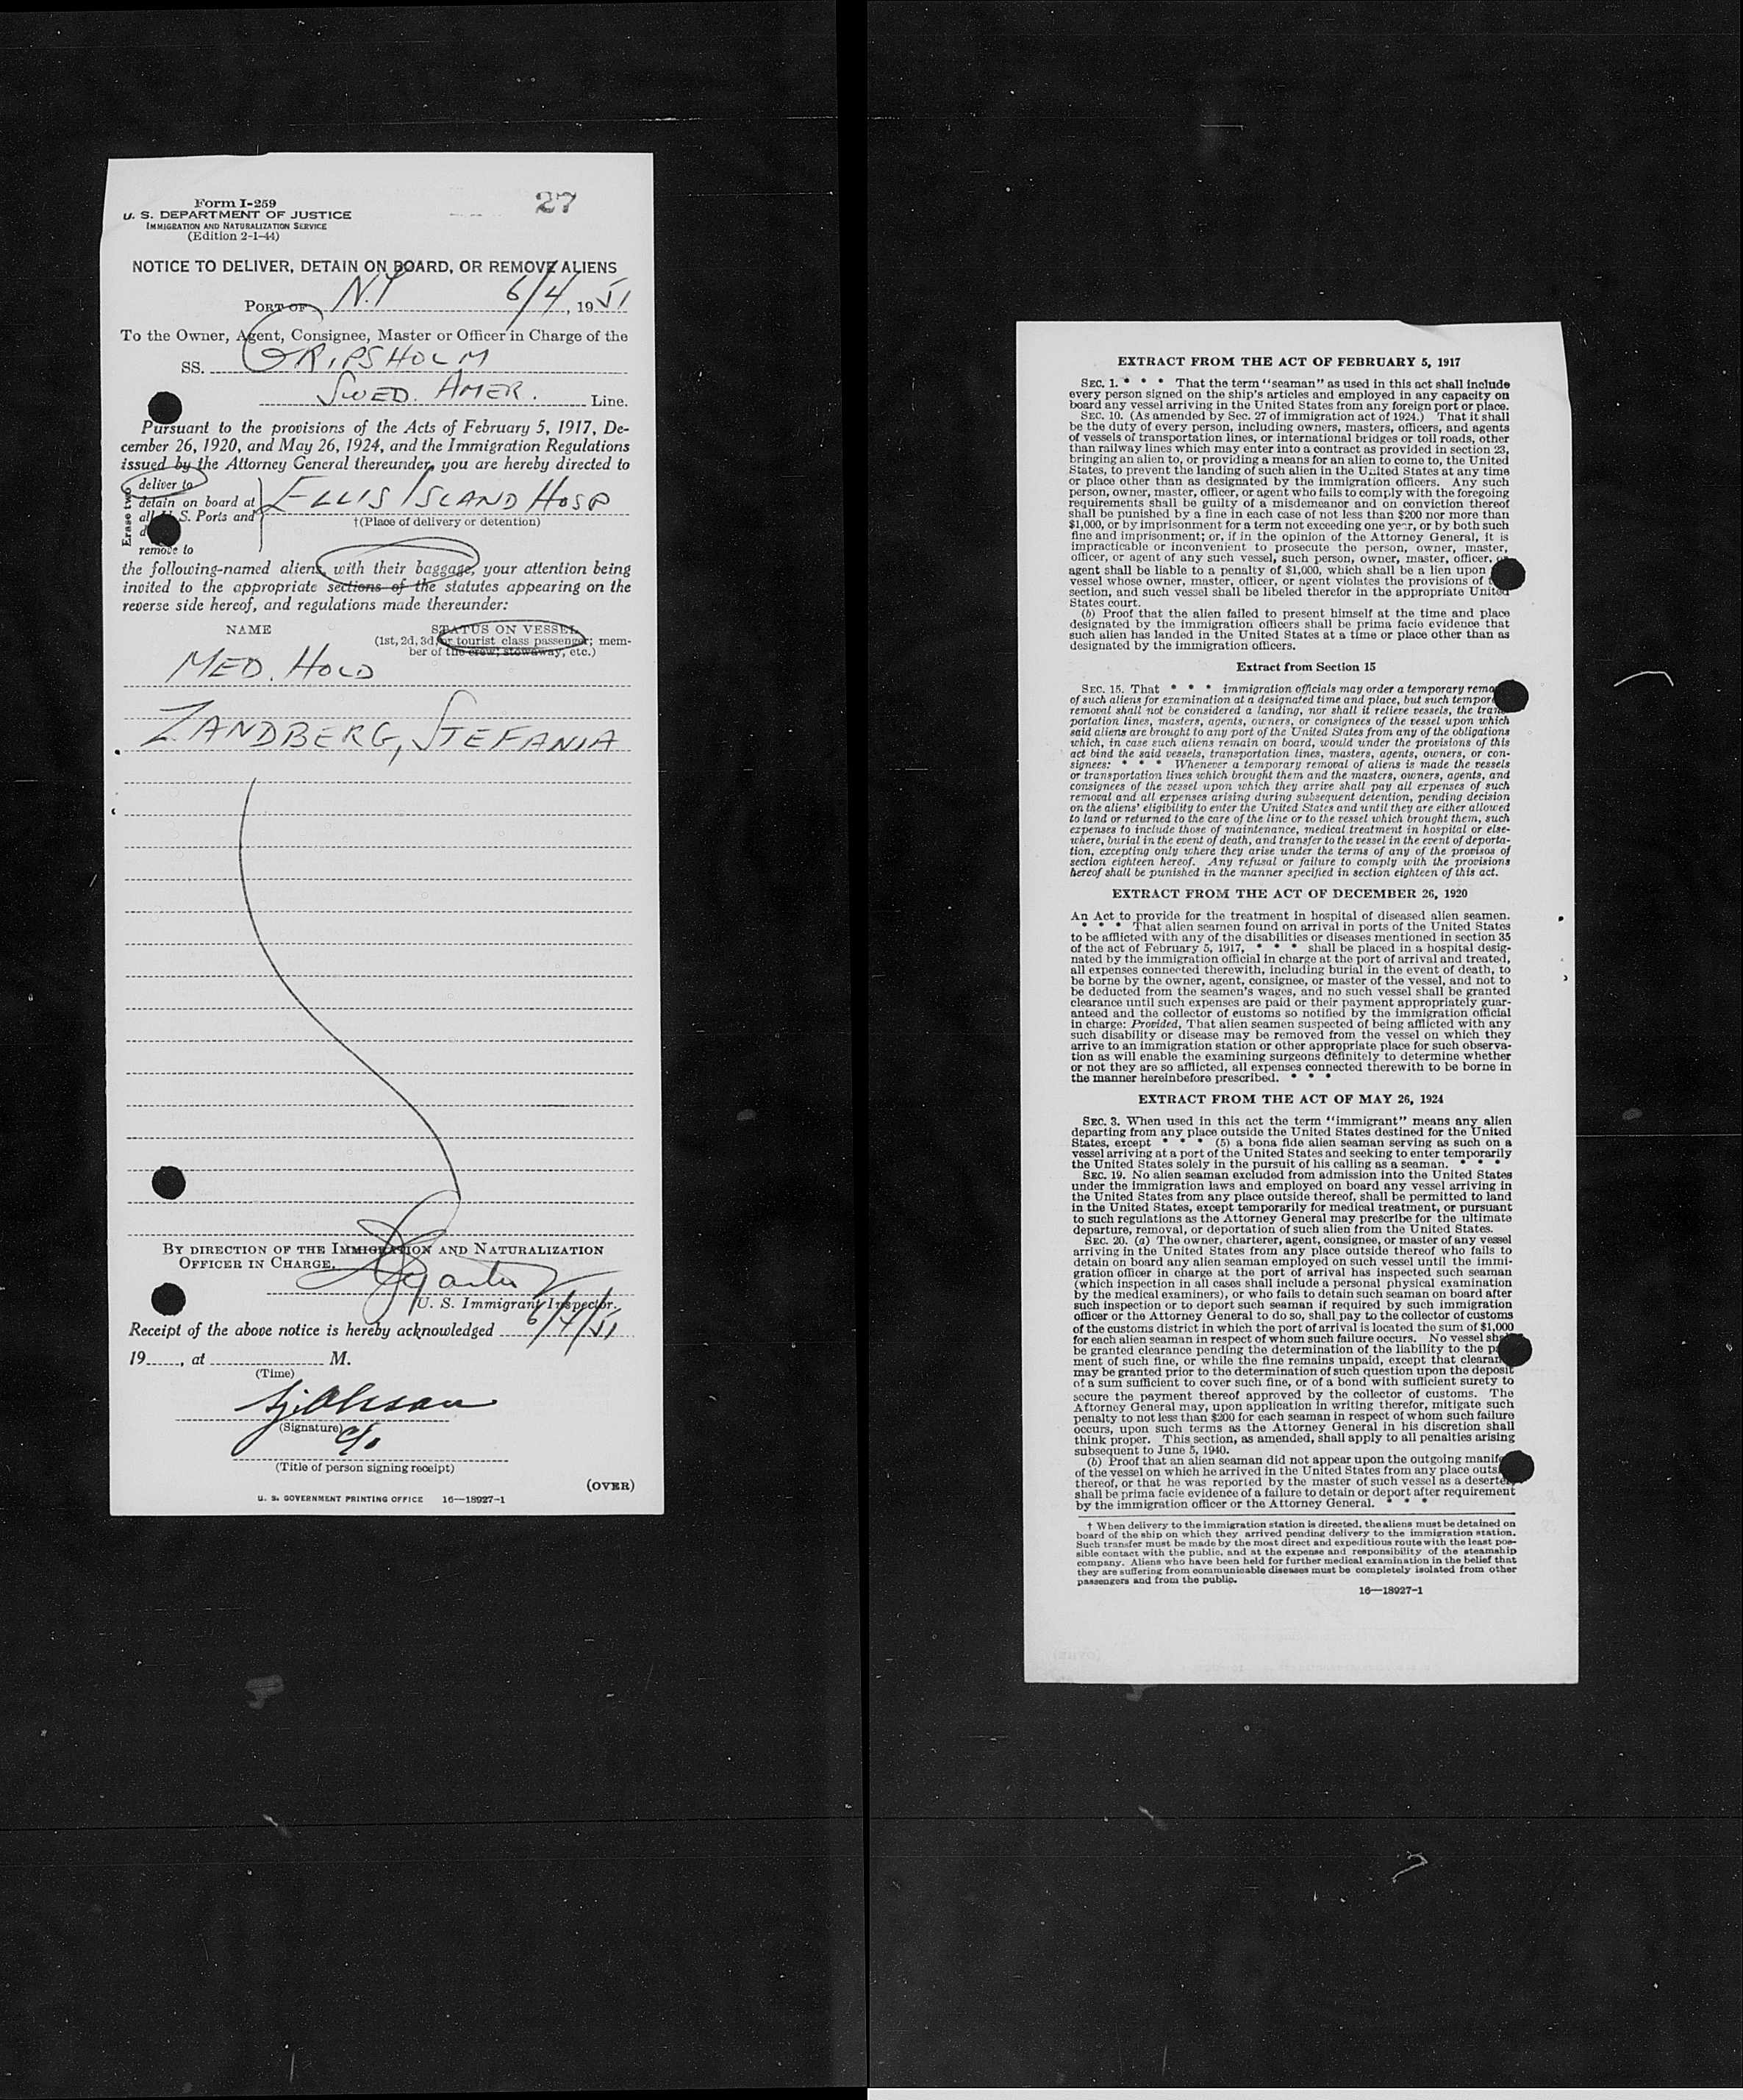 Form I-259
U. S. DEPARTMENT OF JUSTICE
IMMIGRATION AND NATURALIZATION SERVICE
(Edition 2-1-44)
27
NOTICE TO DELIVER, DETAIN ON BOARD, OR REMOVE ALIENS
PORT OF N.Y 6/4, 1951
To the Owner, Agent, Consignee, Master or Officer in Charge of the
SS. GRIPSHOLM
SWED. AMER. Line.
Pursuant to the provisions of the Acts of February 5, 1917, De-
cember 26, 1920, and May 26, 1924, and the Immigration Regulations
issued by the Attorney General thereunder, you are hereby directed to
Erase two
deliver to
detain on board at
all U. S. Ports and
remove to
ELLIS ISLAND HOSP
†(Place of delivery or detention)
the following-named aliens, with their baggage, your attention being
invited to the appropriate sections of the statutes appearing on the
reverse side hereof, and regulations made thereunder:
NAME
STATUS ON VESSEL
(1st, 2d, 3d, or tourist class passenger; mem-
ber of the crew; stowaway, etc.)
MED. HOLD
ZANDBERG, STEFANIA
BY DIRECTION OF THE IMMIGRATION AND NATURALIZATION
OFFICER IN CHARGE,
U. S. Immigrant Inspector.
Receipt of the above notice is hereby acknowledged 6/4/51
19......, at .................... M.
(Time)
(Signature)
c/o
(Title of person signing receipt)
(OVER)
U. S. GOVERNMENT PRINTING OFFICE 16—18927-1
EXTRACT FROM THE ACT OF FEBRUARY 5, 1917
SEC. 1. * * * That the term "seaman" as used in this act shall include
every person signed on the ship's articles and employed in any capacity on
board any vessel arriving in the United States from any foreign port or place.
SEC. 10. (As amended by Sec. 27 of immigration act of 1924.) That it shall
be the duty of every person, including owners, masters, officers, and agents
of vessels of transportation lines, or international bridges or toll roads, other
than railway lines which may enter into a contract as provided in section 23,
bringing an alien to, or providing a means for an alien to come to, the United
States, to prevent the landing of such alien in the United States at any time
or place other than as designated by the immigration officers. Any such
person, owner, master, officer, or agent who fails to comply with the foregoing
requirements shall be guilty of a misdemeanor and on conviction thereof
shall be punished by a fine in each case of not less than $200 nor more than
$1,000, or by imprisonment for a term not exceeding one year, or by both such
fine and imprisonment; or, if in the opinion of the Attorney General, it is
impracticable or inconvenient to prosecute the person, owner, master,
officer, or agent of any such vessel, such person, owner, master, officer, or
agent shall be liable to a penalty of $1,000, which shall be a lien upon
vessel whose owner, master, officer, or agent violates the provisions of
section, and such vessel shall be libeled therefor in the appropriate United
States court.
(b) Proof that the alien failed to present himself at the time and place
designated by the immigration officers shall be prima facie evidence that
such alien has landed in the United States at a time or place other than as
designated by the immigration officers.
Extract from Section 15
SEC. 15. That * * * immigration officials may order a temporary remo
of such aliens for examination at a designated time and place, but such tempor
removal shall not be considered a landing, nor shall it relieve vessels, the trans-
portation lines, masters, agents, owners, or consignees of the vessel upon which
said aliens are brought to any port of the United States from any of the obligations
which, in case such aliens remain on board, would under the provisions of this
act bind the said vessels, transportation lines, masters, agents, owners, or con-
signees: * * * Whenever a temporary removal of aliens is made the vessels
or transportation lines which brought them and the masters, owners, agents, and
consignees of the vessel upon which they arrive shall pay all expenses of such
removal and all expenses arising during subsequent detention, pending decision
on the aliens' eligibility to enter the United States and until they are either allowed
to land or returned to the care of the line or to the vessel which brought them, such
expenses to include those of maintenance, medical treatment in hospital or else-
where, burial in the event of death, and transfer to the vessel in the event of deporta-
tion, excepting only where they arise under the terms of any of the provisos of
section eighteen hereof. Any refusal or failure to comply with the provisions
hereof shall be punished in the manner specified in section eighteen of this act.
EXTRACT FROM THE ACT OF DECEMBER 26, 1920
An Act to provide for the treatment in hospital of diseased alien seamen.
* * * That alien seamen found on arrival in ports of the United States
to be afflicted with any of the disabilities or diseases mentioned in section 35
of the act of February 5, 1917, * * * shall be placed in a hospital desig-
nated by the immigration official in charge at the port of arrival and treated,
all expenses connected therewith, including burial in the event of death, to
be borne by the owner, agent, consignee, or master of the vessel, and not to
be deducted from the seamen's wages, and no such vessel shall be granted
clearance until such expenses are paid or their payment appropriately guar-
anteed and the collector of customs so notified by the immigration official
in charge: Provided, That alien seamen suspected of being afflicted with any
such disability or disease may be removed from the vessel on which they
arrive to an immigration station or other appropriate place for such observa-
tion as will enable the examining surgeons definitely to determine whether
or not they are so afflicted, all expenses connected therewith to be borne in
the manner hereinbefore prescribed. * * *
EXTRACT FROM THE ACT OF MAY 26, 1924
SEC. 3. When used in this act the term "immigrant" means any alien
departing from any place outside the United States destined for the United
States, except * * * (5) a bona fide alien seaman serving as such on a
vessel arriving at a port of the United States and seeking to enter temporarily
the United States solely in the pursuit of his calling as a seaman. * * *
SEC. 19. No alien seaman excluded from admission into the United States
under the immigration laws and employed on board any vessel arriving in
the United States from any place outside thereof, shall be permitted to land
in the United States, except temporarily for medical treatment, or pursuant
to such regulations as the Attorney General may prescribe for the ultimate
departure, removal, or deportation of such alien from the United States.
SEC. 20. (a) The owner, charterer, agent, consignee, or master of any vessel
arriving in the United States from any place outside thereof who fails to
detain on board any alien seaman employed on such vessel until the immi-
gration officer in charge at the port of arrival has inspected such seaman
(which inspection in all cases shall include a personal physical examination
by the medical examiners), or who fails to detain such seaman on board after
such inspection or to deport such seaman if required by such immigration
officer or the Attorney General to do so, shall pay to the collector of customs
of the customs district in which the port of arrival is located the sum of $1,000
for each alien seaman in respect of whom such failure occurs. No vessel sha
be granted clearance pending the determination of the liability to the pa
ment of such fine, or while the fine remains unpaid, except that clearan
may be granted prior to the determination of such question upon the deposit
of a sum sufficient to cover such fine, or of a bond with sufficient surety to
secure the payment thereof approved by the collector of customs. The
Attorney General may, upon application in writing therefor, mitigate such
penalty to not less than $200 for each seaman in respect of whom such failure
occurs, upon such terms as the Attorney General in his discretion shall
think proper. This section, as amended, shall apply to all penalties arising
subsequent to June 5, 1940.
(b) Proof that an alien seaman did not appear upon the outgoing manife
of the vessel on which he arrived in the United States from any place outs
thereof, or that he was reported by the master of such vessel as a deserter
shall be prima facie evidence of a failure to detain or deport after requirement
by the immigration officer or the Attorney General. * * *
† When delivery to the immigration station is directed, the aliens must be detained on
board of the ship on which they arrived pending delivery to the immigration station.
Such transfer must be made by the most direct and expeditious route with the least pos-
sible contact with the public, and at the expense and responsibility of the steamship
company. Aliens who have been held for further medical examination in the belief that
they are suffering from communicable diseases must be completely isolated from other
passengers and from the public.
16—18927-1